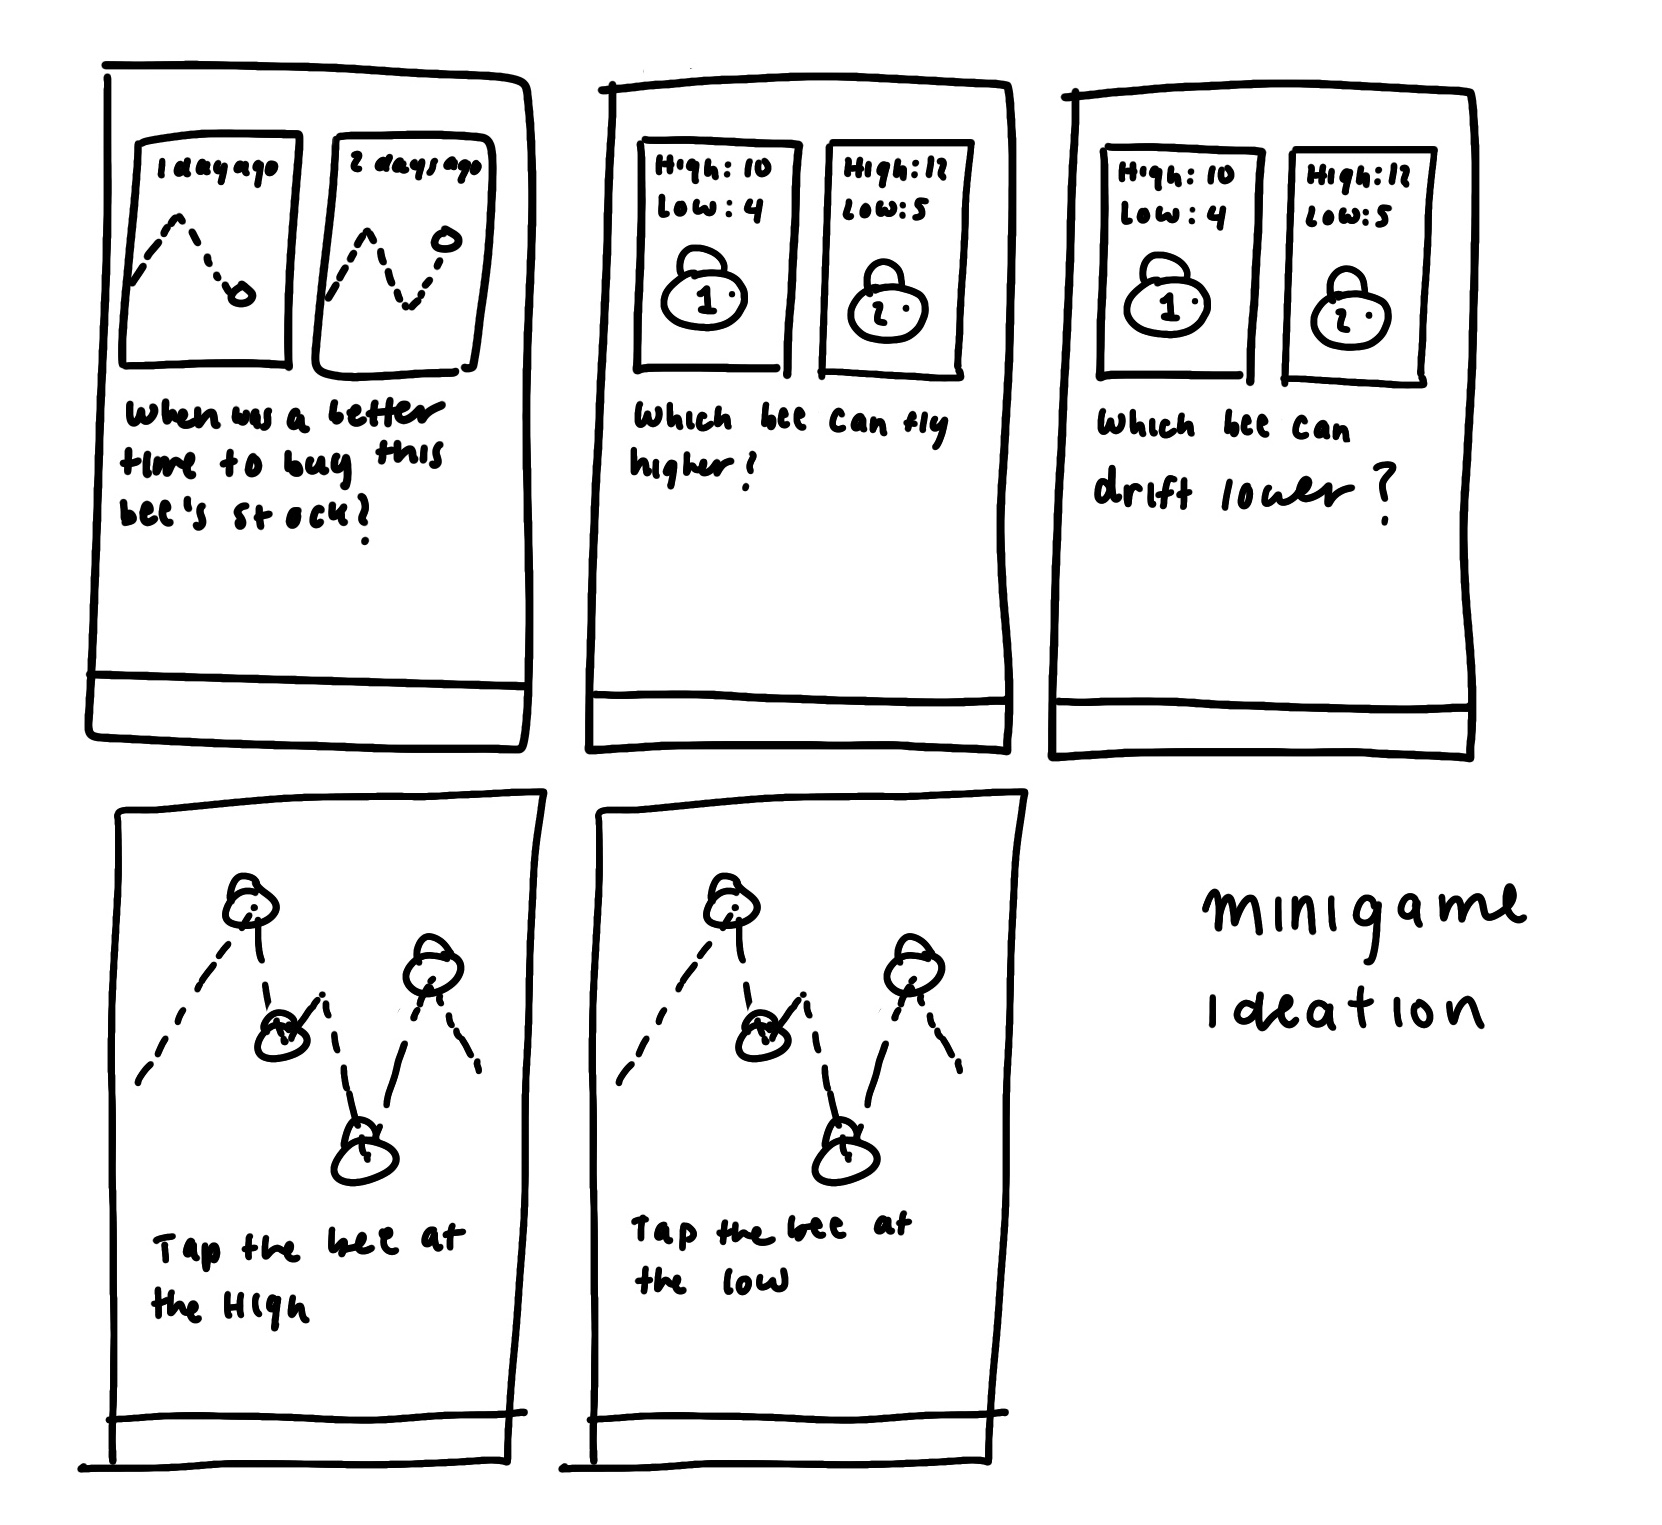 1 day ago
2 days ago
When was a better
time to buy this
bee's stock?
High: 10
Low: 4
1
High: 12
Low: 5
2
Which bee can fly
higher?
High: 10
Low: 4
1
High: 12
Low: 5
2
Which bee can
drift lower?
Tap the bee at
the High
Tap the bee at
the low
minigame
ideation